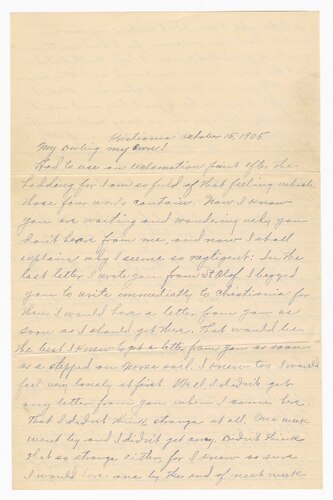 Kristiania October 15, 1905
My Darling my Own!
Had to use an exclamation point after the
heading for I am so full of that feeling which
those four words contain. Now I know
you are waiting and wondering why you
don't hear from me, and now I shall
explain why I seem so negligent. In the
last letter I wrote you from St Olaf I begged
you to write immediately to Christiania for
then I would have a letter from you as
soon as I should get there. That would be
the best I knew to get a letter from you as soon
as a stepped on Norse soil. I knew too I would
feel very lonely at first. Well I didn't get
any letter from you when I came here.
That I didn't think strange at all. One week
went by and I didn't get any. Didn't think
that so strange either for I knew so sure
I would have one by the end of next week